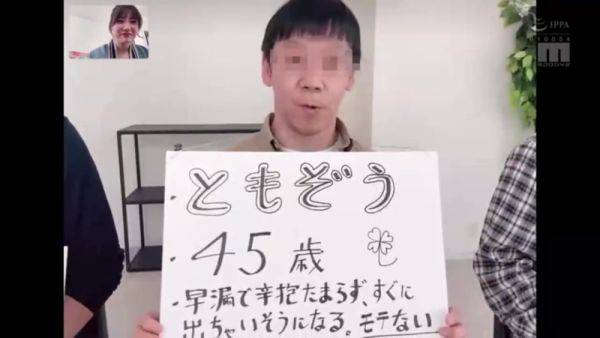 IPPA
M
・ともぞう
・45歳
・早漏で辛抱たまらず、すぐに
出ちゃいそうになる。モテない